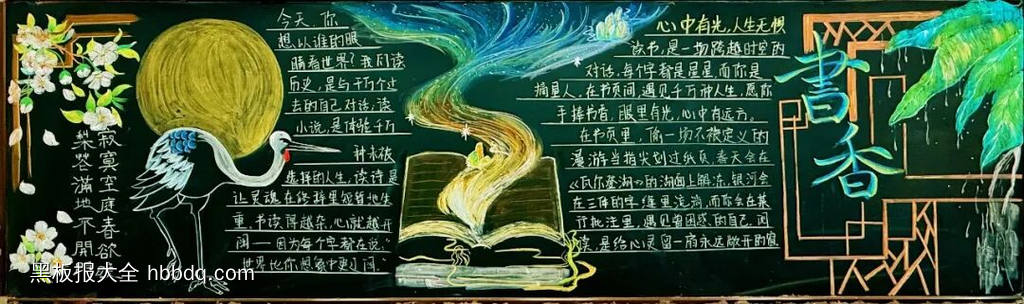 寂寞空庭春欲晚
梨花滿地不開門
今天 你
想以谁的眼
睛看世界？我们读
历史，是与千万个过
去的自己对话；读
小说，是体验千万
种未被
选择的人生，读诗是
让灵魂在修辞里
重。书读得越杂，心就越开
阔——因为每个字都在说："
世界比你想象中更辽阔。"
心中有光，人生无惧
读书，是一场跨越时空的
对话，每个字都是星星，而你是
摘星人。在书页间，遇见千万种人生，愿你
手捧书香，眼里有光，心中有远方。
在书页里，你一切不被定义的
漫游，当指尖划过纸页，春天会在
《瓦尔登湖》的湖面上解冻，银河会
在三体的字缝里流淌，而你会在某
行批注里，遇见曾困惑的自己，阅
读，是给心灵留一扇永远敞开的窗
書香
黑板报大全 hbbdq.com